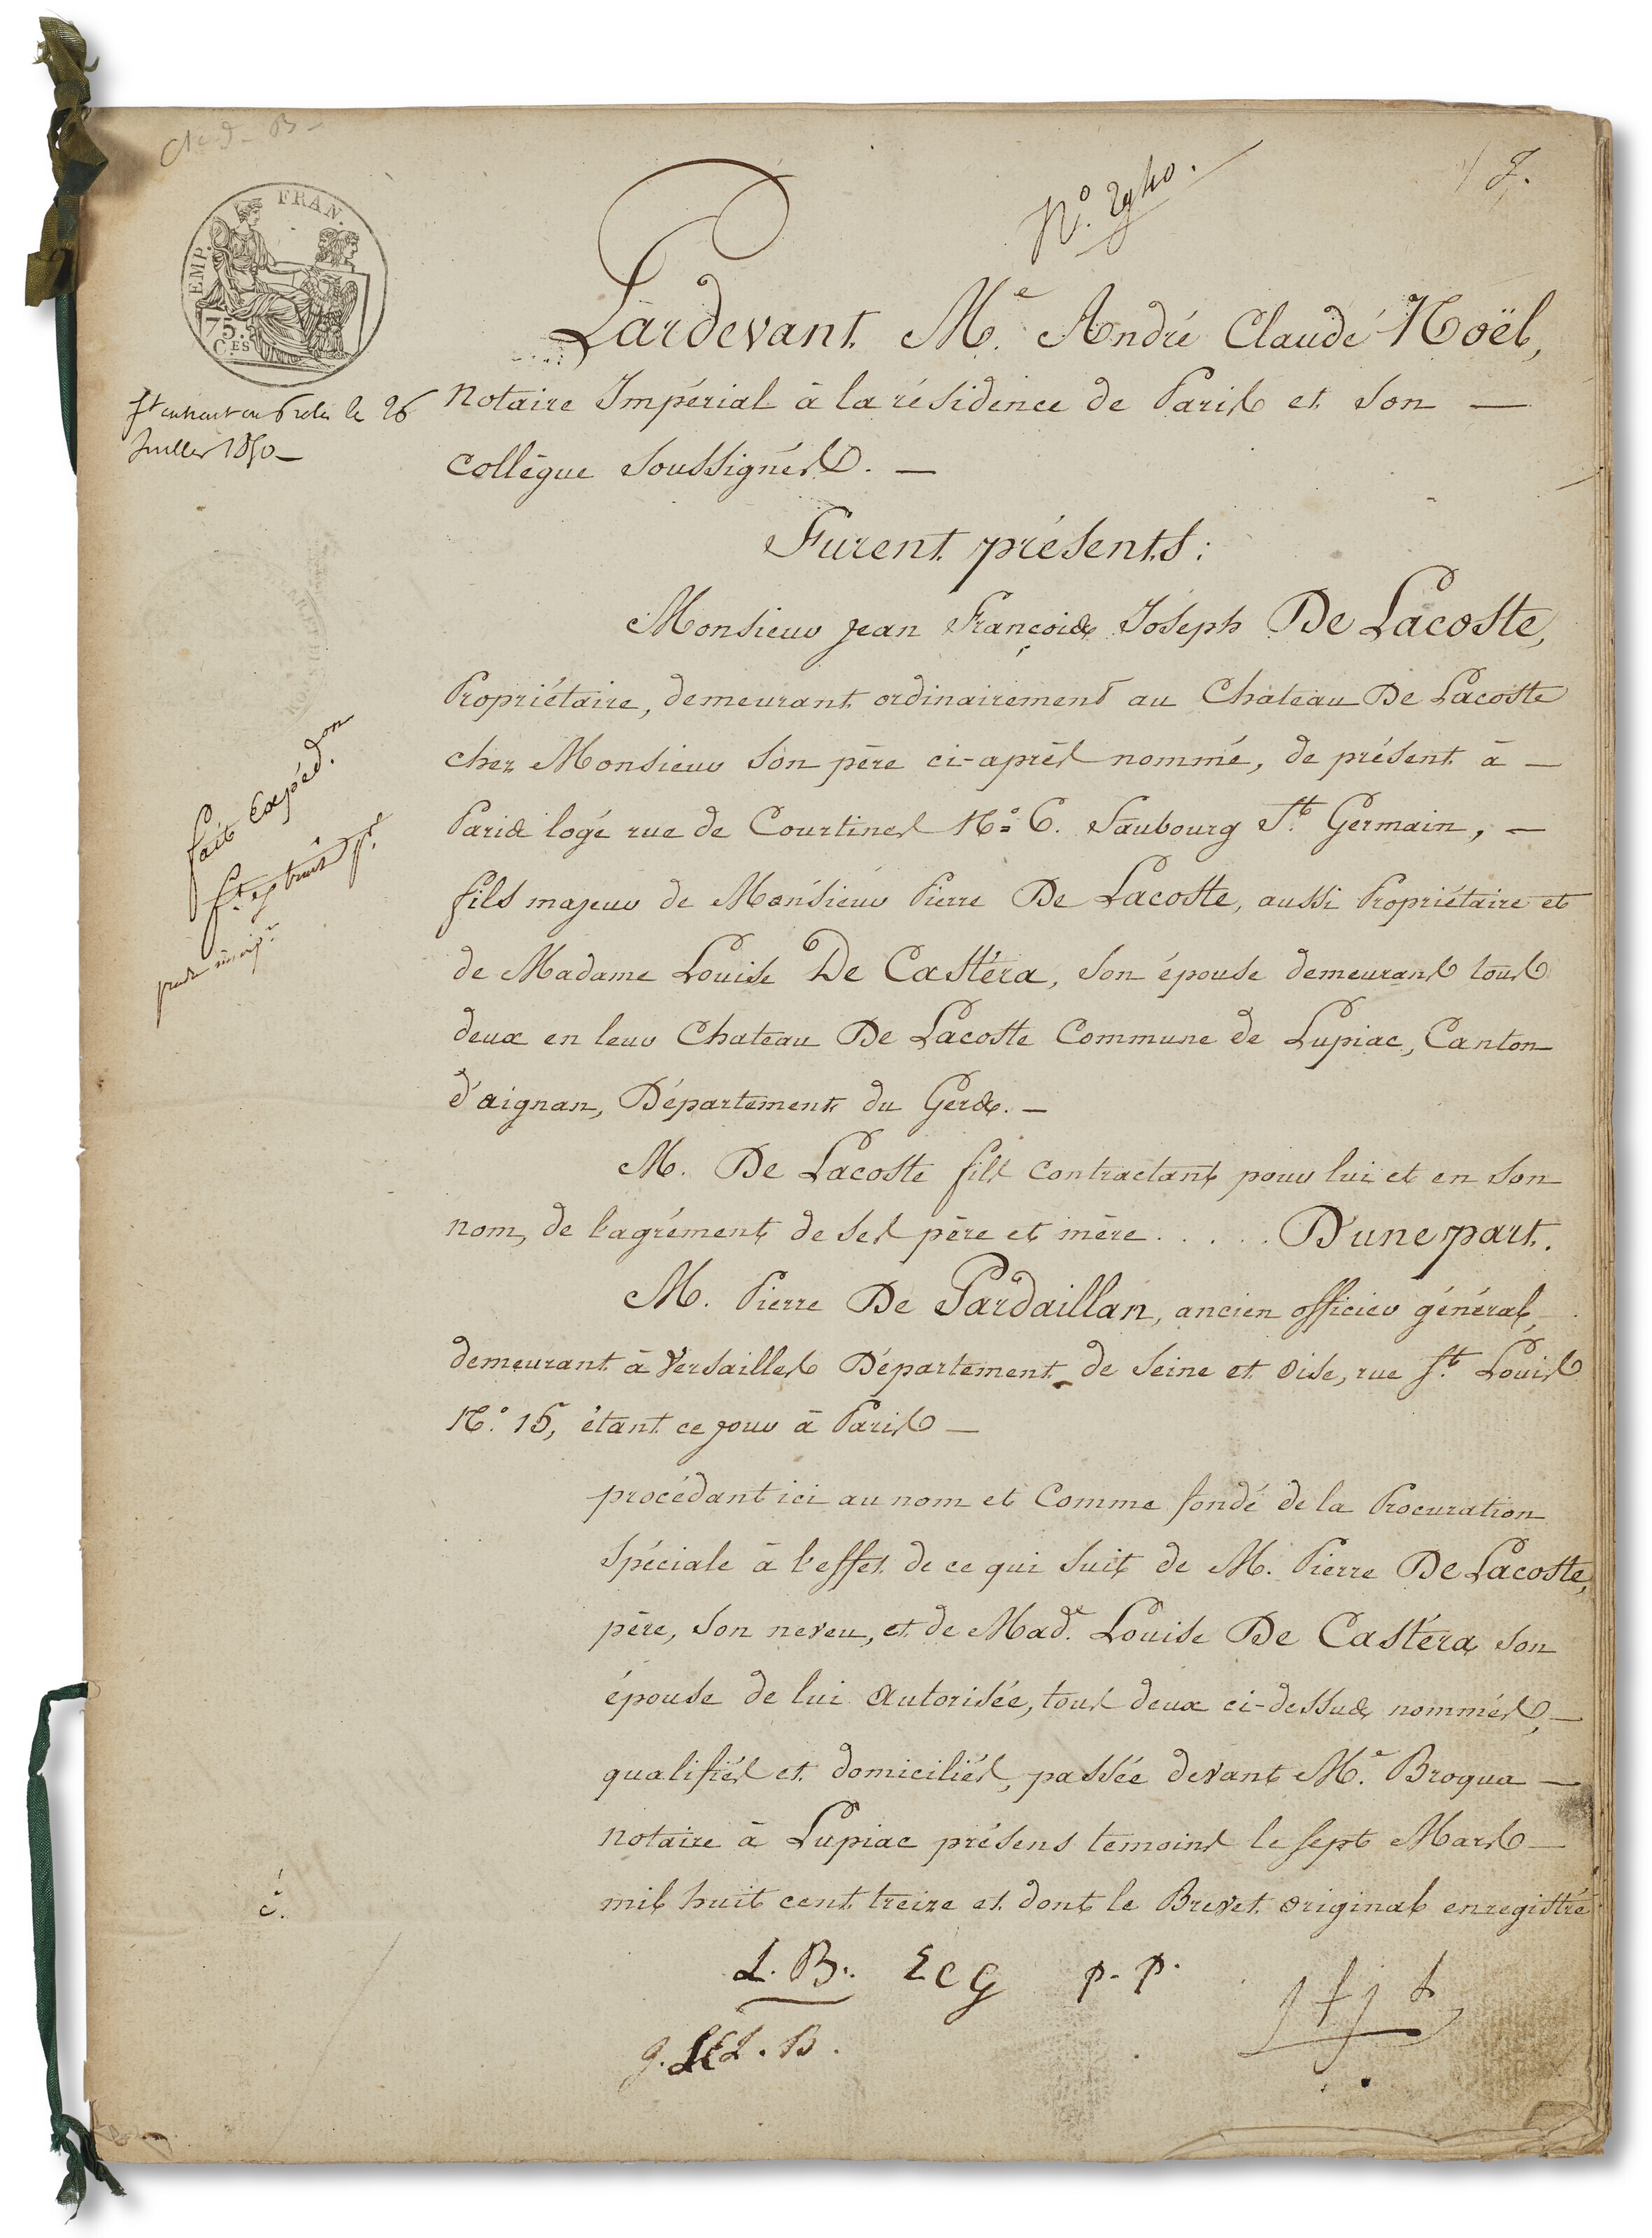 Nº. 2940.
EMP. FRAN.
75.
C.ES
Pardevant Me. André Claude Noël,
Notaire Impérial à la résidence de Paris et son —
collègue soussignés. —
le 26
Juillet 1850 —
Furent présents :
Monsieur Jean François Joseph De Lacoste,
Propriétaire, demeurant ordinairement au Chateau De Lacoste
chez Monsieur son père ci-après nommé, de présent à —
Paris logé rue de Courtines Nº. 6. Faubourg St. Germain, —
fils majeur de Monsieur Pierre De Lacoste, aussi Propriétaire et
de Madame Louise De Castéra, son épouse demeurans tous
deux en leur Chateau De Lacoste Commune de Lupiac, Canton
d'aignan, Département du Gers. —
fait Expédon.
M. De Lacoste fils contractant pour lui et en son
nom, de l'agrément de ses père et mère . . . . . D'une part.
M. Pierre De Pardaillan, ancien officier général,
demeurant à Versailles Département de Seine et Oise, rue St. Louis
Nº. 15, étant ce jour à Paris —
procédant ici au nom et comme fondé de la Procuration
spéciale à l'effet de ce qui suit de M. Pierre De Lacoste,
père, son neveu, et de Made. Louise De Castéra son
épouse de lui autorisée, tous deux ci-dessus nommés, —
qualifiés et domiciliés, passée devant Me. Broqua —
notaire à Lupiac présens temoins le sept Mars —
mil huit cent treize et dont le Brevet original enregistré
L. B. ECG p. p.